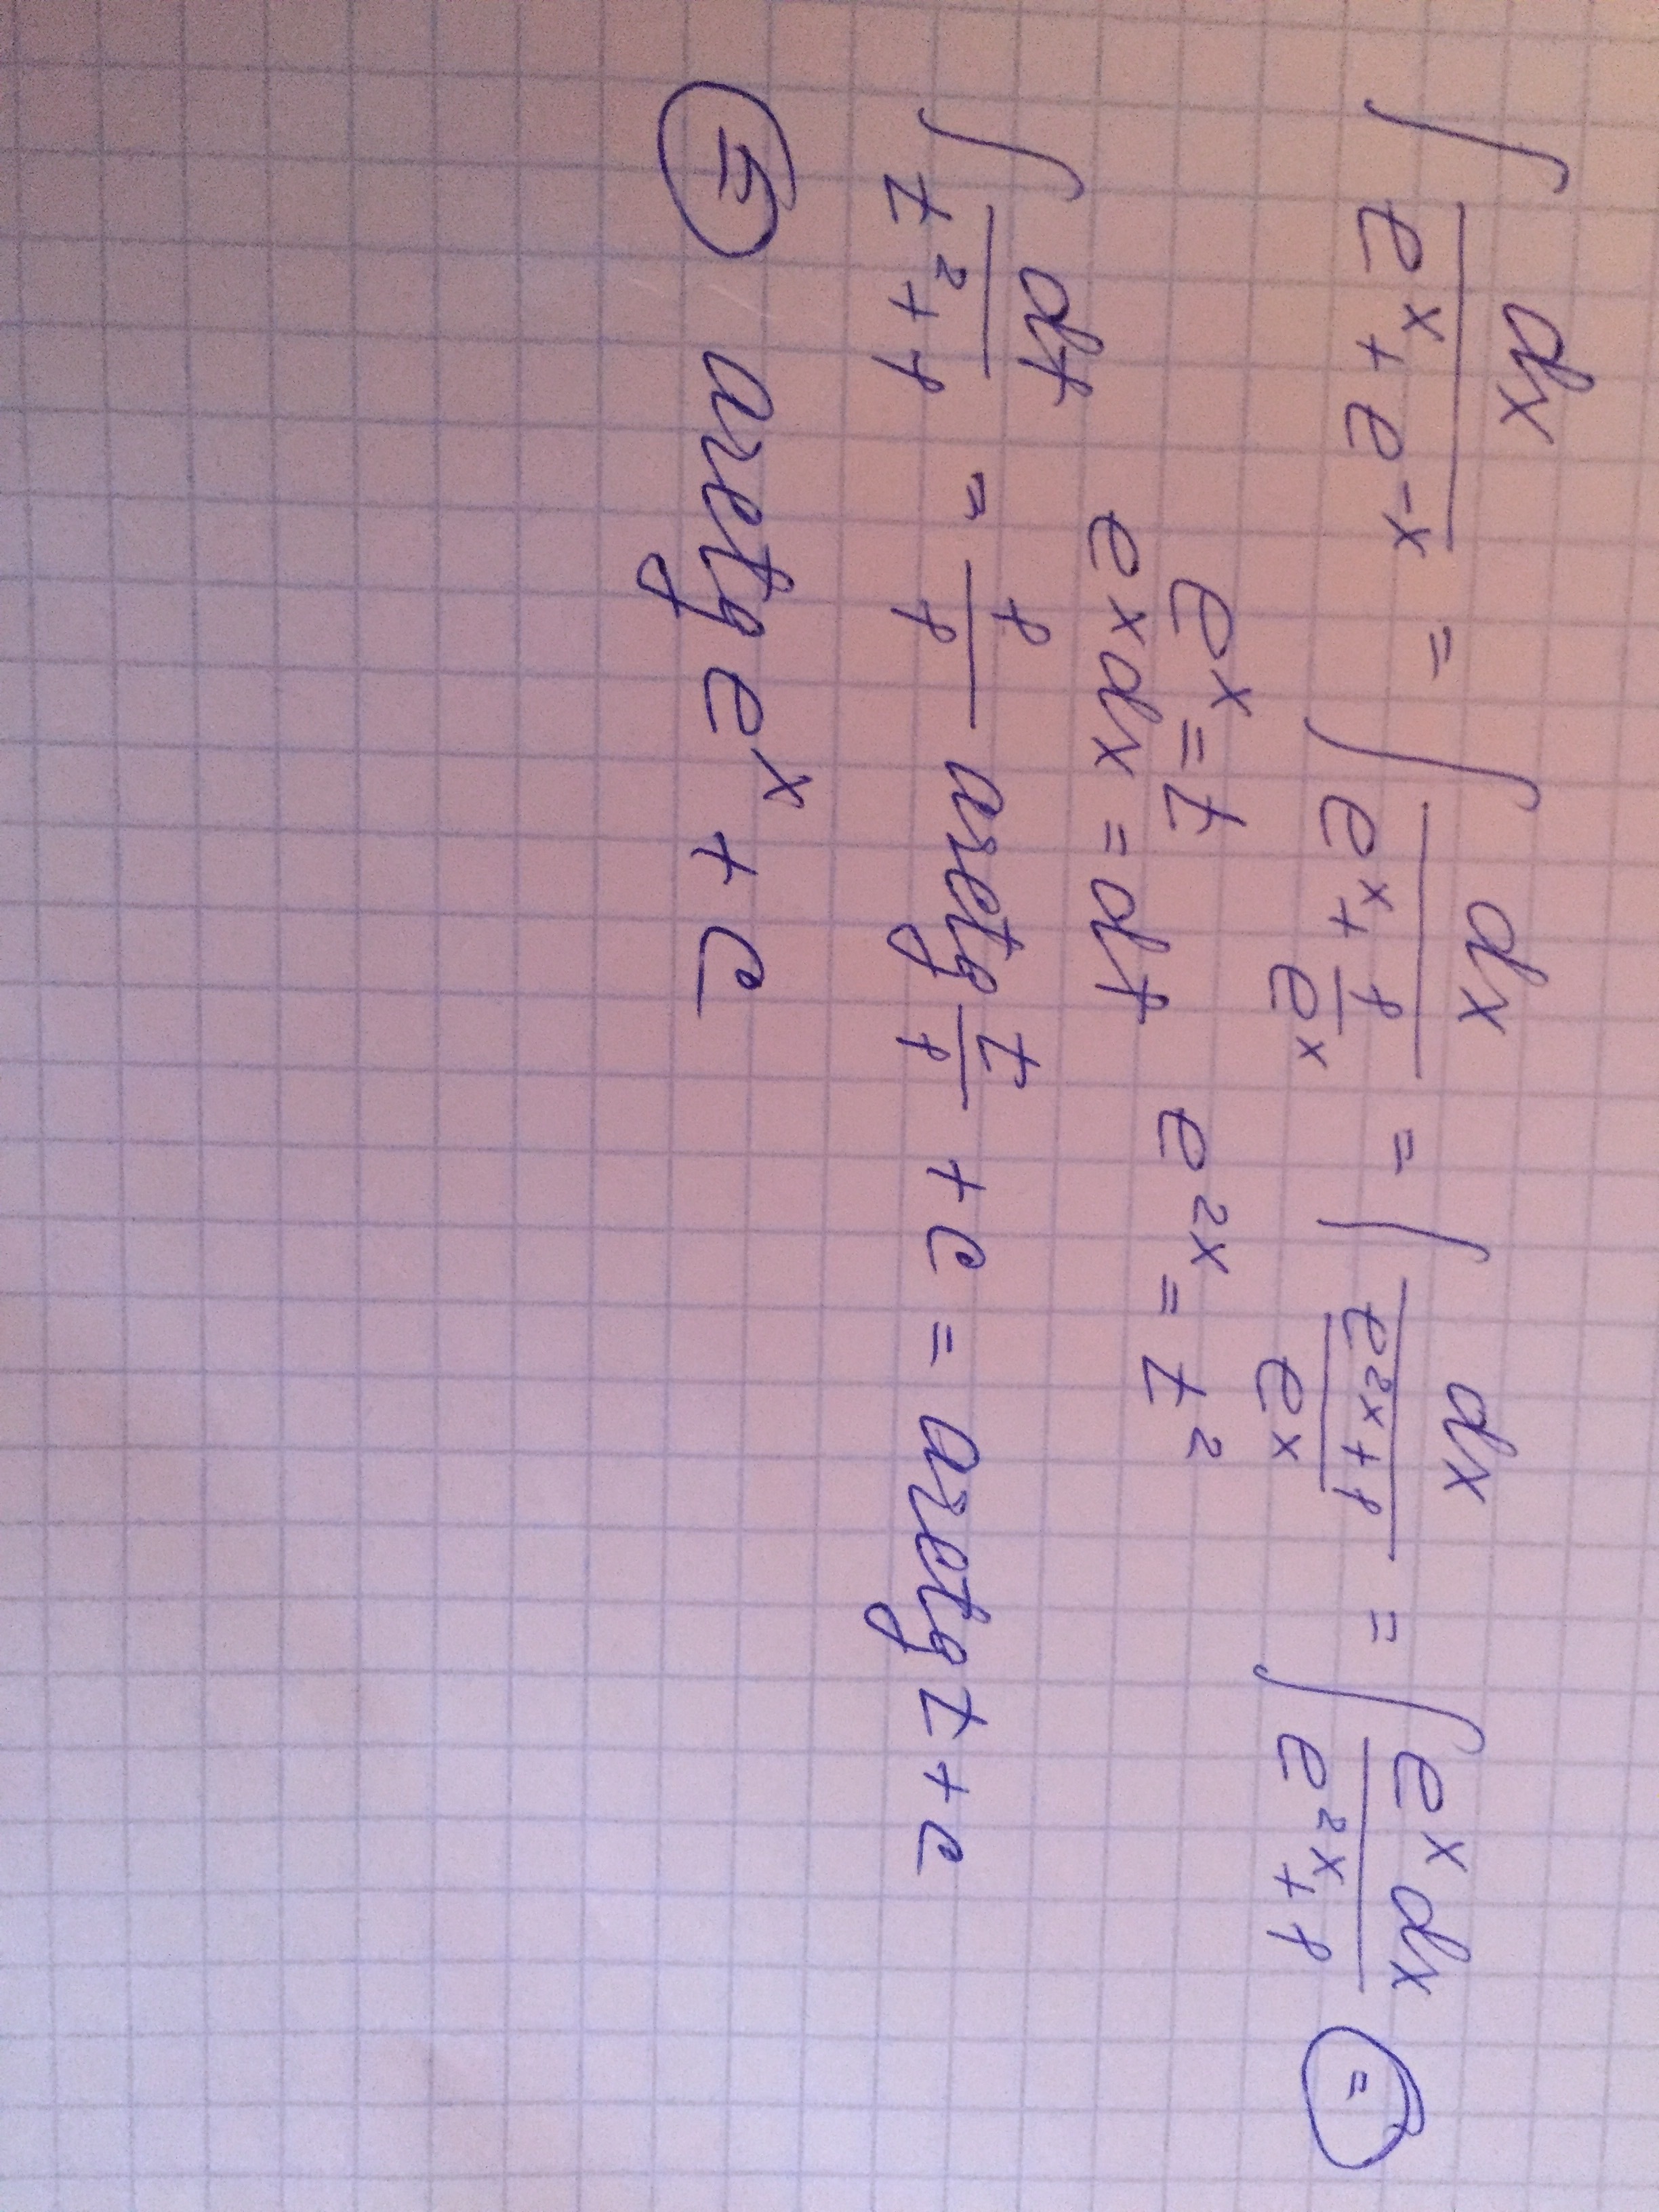 ∫ dx/(e^x + e^-x) = ∫ dx/(e^x + 1/e^x) = ∫ dx/((e^2x + 1)/e^x) = ∫ e^x dx/(e^2x + 1) =
e^x = t e^2x = t^2
e^x dx = dt
∫ dt/(t^2 + 1) = 1/1 arctg t/1 + c = arctg t + c
= arctg e^x + c